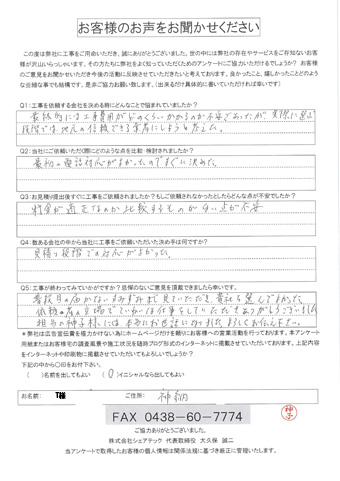 お客様のお声をお聞かせください
この度は弊社に工事をご用命いただき、誠にありがとうございました。世の中には弊社の存在やサービスをご存知ないお客様
が沢山いらっしゃいます。その方たちに弊社をよく知っていただくためのアンケートにご協力いただけるでしょうか？ お客様
のご意見をお聞かせいただき今後の活動に反映させていただきたいと考えております。良かったこと、嬉しかったことなどの
些細な事でも結構です。是非ご協力お願い致します。（出来るだけ具体的に書いていただければ幸いです）
Q1：工事を依頼する会社を決める時にどんなことで悩まれていましたか？
最終的には工事費用がどのくらいかかるのか不安であったが、実際に選ぶ
段階では、地元の信頼できる業者にしようと考えた。
Q2：当社にご依頼いただく際にどのような点を比較・検討されましたか？
最初の電話対応がよかったのですぐに決めた。
Q3：お見積り提出後すぐに工事をご依頼されましたか？もしご依頼されなかったとしたらどんな点が不安でしたか？
料金が適正なのか比較するものがない点が不安
Q4：数ある会社の中から当社に工事をご依頼いただいた決め手は何ですか？
見積り段階での対応がよかった。
Q5：工事が終わってみていかがですか？忌憚のないご意見を頂戴できましたら幸いです。
普段目の届かないすみずみまで見ていただき、貴社を選んでよかった。
依頼の立場でていねいな仕事をしていただきありがとうございました
担当の神子様には、本当にお世話になりました。よろしくお伝え下さい。
＊弊社は広告宣伝費を極力かけない為にホームページだけを頼りにお客様への営業活動を行っております。本アンケート
用紙またはお客様宅の調査風景や施工状況を随時ブログ形式のインターネットに掲載させていただいております。上記内容
をインターネットや印刷物に掲載させていただいてもよろしいでしょうか？
下記の中から○印をお付下さい。
（ ）名前を出してもよい （○）イニシャルなら出してもよい
お名前： T様 ご住所： 神納
FAX 0438-60-7774
神子
ご協力ありがとうございました。
株式会社シェアテック 代表取締役 大久保 誠二
当アンケートで取得したお客様の個人情報は関係法規に基づき厳正に管理いたします。